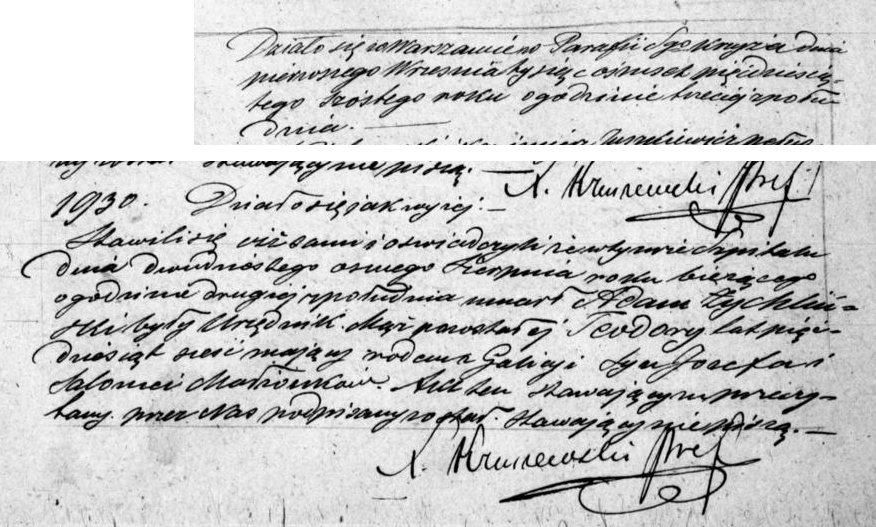 Działo się w Warszawie w Parafii Sgo Krzyża dnia
pierwszego Września tysiąc ośmset pięćdziesią-
tego szóstego roku o godzinie trzeciej z połu
dnia.
Juszkiewicz
Stawający nie piszą. X. Kruszewski
1930. Działo się jak wyżej.
Stawili się ciż sami i oświadczyli że w tymże szpitalu
dnia dwudziestego osmego Sierpnia roku bieżącego
o godzinie drugiej z południa umarł Adam Zychliń-
ski były Urzędnik. Mąż pozostałej Teodory lat pięć-
dziesiąt sześć mający rodem z Galicyi syn Józefa i
Salomei Małżonków. Akt ten stawającym przeczy-
tany przez Nas podpisany został. Stawający nie piszą.
X. Kruszewski